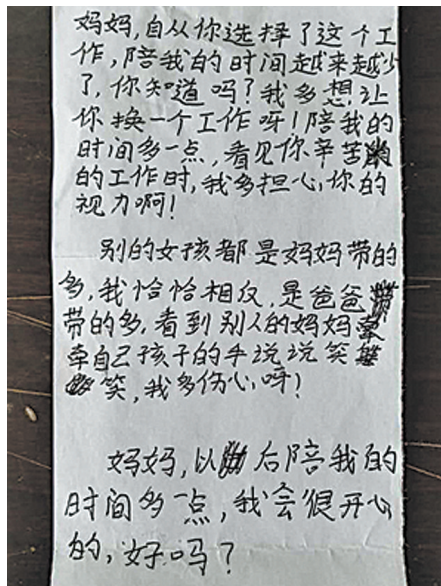 妈妈,自从你选择了这个工
作,陪我的时间越来越少
了,你知道吗?我多想让
你换一个工作呀!陪我的
时间多一点,看见你辛苦
的工作时,我多担心,你的
视力啊!
别的女孩都是妈妈带的
多,我恰恰相反,是爸爸
带的多,看到别人的妈妈
牵自己孩子的手说说笑
笑,我多伤心呀!
妈妈,以后陪我的
时间多一点,我会很开心
的,好吗?